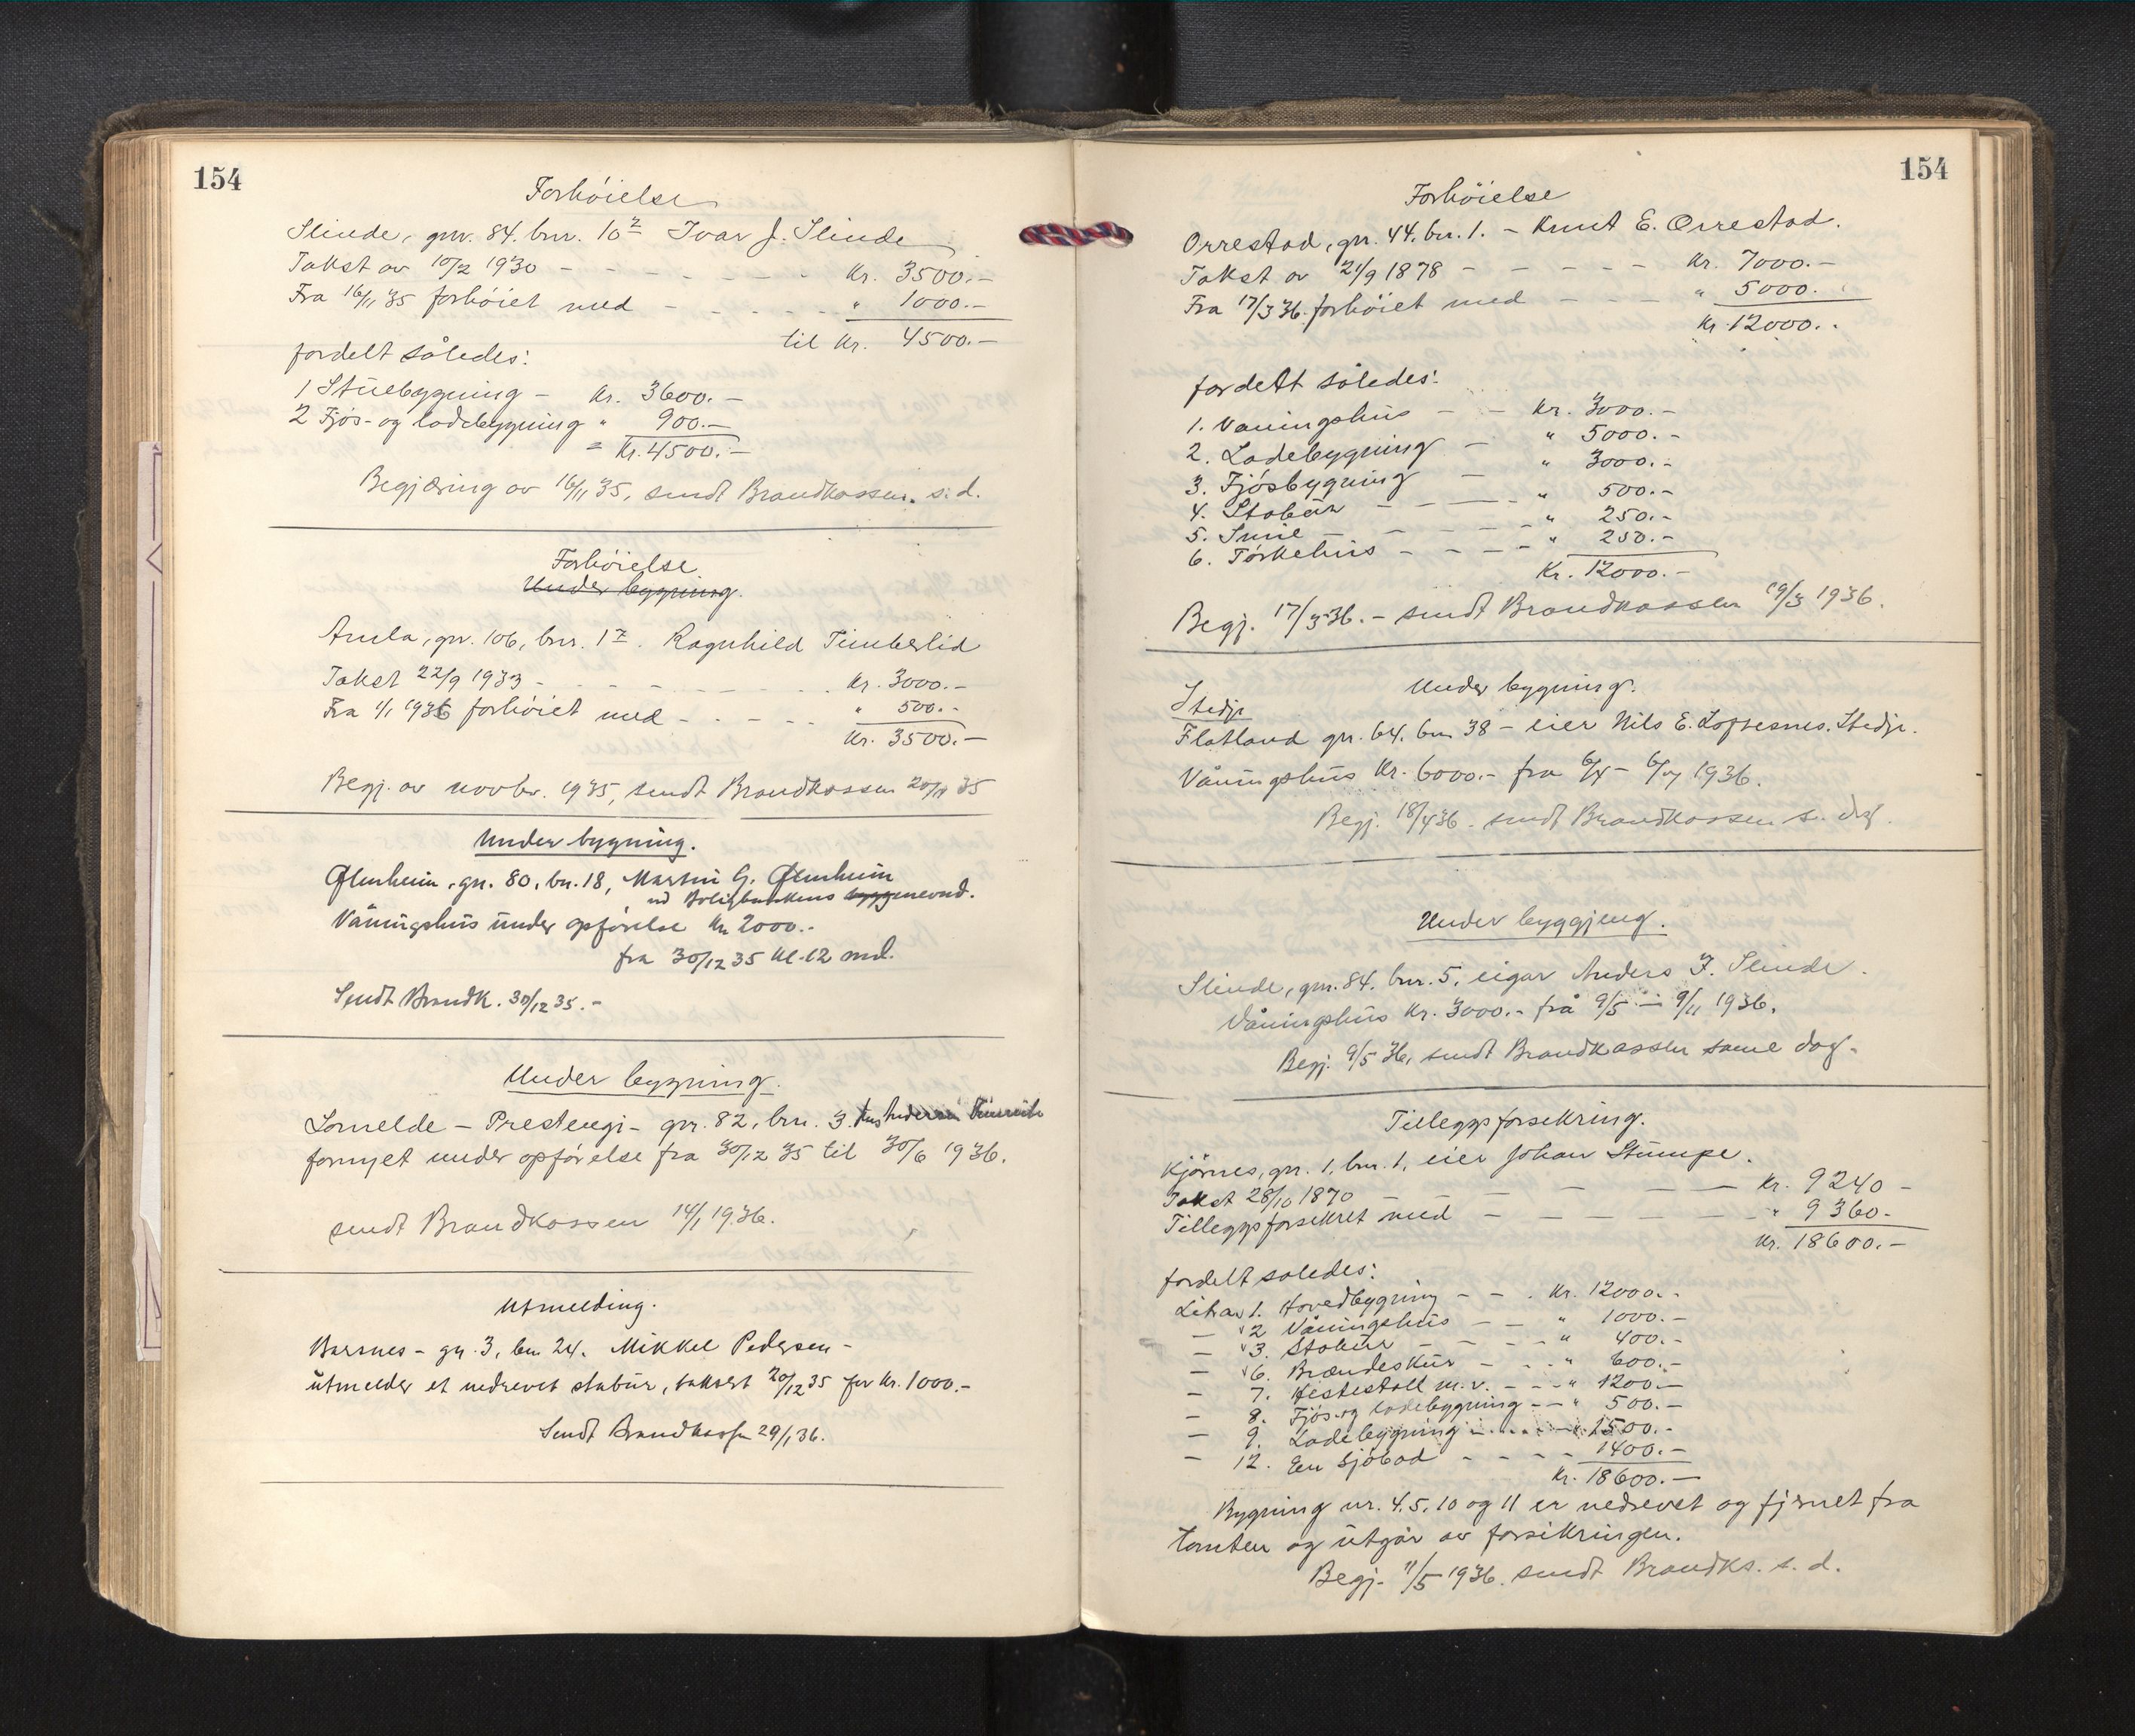 154
Forhöielse
Slinde, gnr. 84. bnr. 10² Ivar J. Slinde
Takst av 10/2 1930 - - - - - - - kr. 3500.-
Fra 16/11 35 forhöiet med - - - - - " 1000.-
til kr. 4500.-
fordelt således:
1 Stuebygning - kr. 3600.-
2 Fjös- og ladebygning " 900.-
= kr. 4500.-
Begjæring av 16/11 35, sendt Brandkassen. s. d.
Forhöielse
Under bygning.
Amla, gnr. 106, bnr. 1². Ragnhild Timberlid
Takst 22/9 1933 - - - - - - - kr. 3000.-
Fra 1/1 1936 forhöiet med - - - - " 500.-
kr. 3500.-
Begj. av novbr. 1935, sendt Brandkassen 20/11 35
Under bygning.
gn. 80, bn. 18, Martin G.
ved Boligbankens byggenevnd.
Våningshus under opförelse kr 2000.-
fra 30/12 35 kl. 12 md.
Sendt Brandk. 30/12 35.-
Under bygning.
Lomelde - Prestengi - gnr. 82, bnr. 3.
fornyet under opförelse fra 30/12 35 til 30/6 1936.
sendt Brandkassen 14/1 1936.
Utmelding.
Barsnes - gn. 3, bn 24. Mikkel Pedersen -
utmelder et nedrevet stabur, taksert 20/12 35 for kr. 1000.-
Sendt Brandkassen 29/1 36.
154
Forhöielse
Orrestad, gnr. 44. bnr. 1. - Knut E. Orrestad.
Takst av 21/9 1878 - - - - - kr. 7000.-
Fra 17/3 36. forhöiet med - - - " 5000.
kr. 12000.-
fordelt således:
1. Vaningshus - - kr. 3000.-
2. Ladebygning - " 5000.-
3. Fjösbygning - " 3000.-
4. Stabur - - - " 500.-
5. Smie - - - - " 250.-
6. Törkehus - - - - " 250.-
kr. 12000.-
Begj. 17/3 36. - sendt Brandkassen 19/3 1936.
Under bygning.
Stedje
Flatland gnr. 64. bnr 38 - eier Nils E. Loftesnes. Stedje.
Våningshus kr. 6000.- fra 1936.
Begj. 18/4 36. sendt Brandkassen s. dag.
Under byggjing.
Slinde, gnr. 84. bnr. 5, eigar Anders J. Slinde.
Våningshus kr. 3000.- frå 9/5 - 9/11 1936.
Begj. 9/5 36, sendt Brandkassen same dag.
Tilleggsforsikring.
Kjörnes, gnr. 1, bnr. 1, eier Johan Stumpe.
Takst 28/10 1870 - - - - - kr. 9240 -
Tilleggsforsikret med - - - - - " 9360.-
kr. 18600.-
fordelt således:
Litra 1. Hovedbygning - - - kr. 12000.-
- 2 Våningshus - - " 1000.-
- 3. Stabur - - - - " 400.-
- 6. Brændeskur - - - " 600.-
- 7. Hestestall m. v. - - - " 1200.-
- 8. Fjös og ladebygning - - " 500.-
- 9. Ladebygning - - - - " 1500.-
- 12. En Sjöbod - - - - 1400.-
kr. 18600.-
Bygning nr. 4, 5, 10 og 11 er nedrevet og fjernet fra
tomten og utgår av forsikringen.
Begj. 11/5 1936. sendt Brandks. s. d.